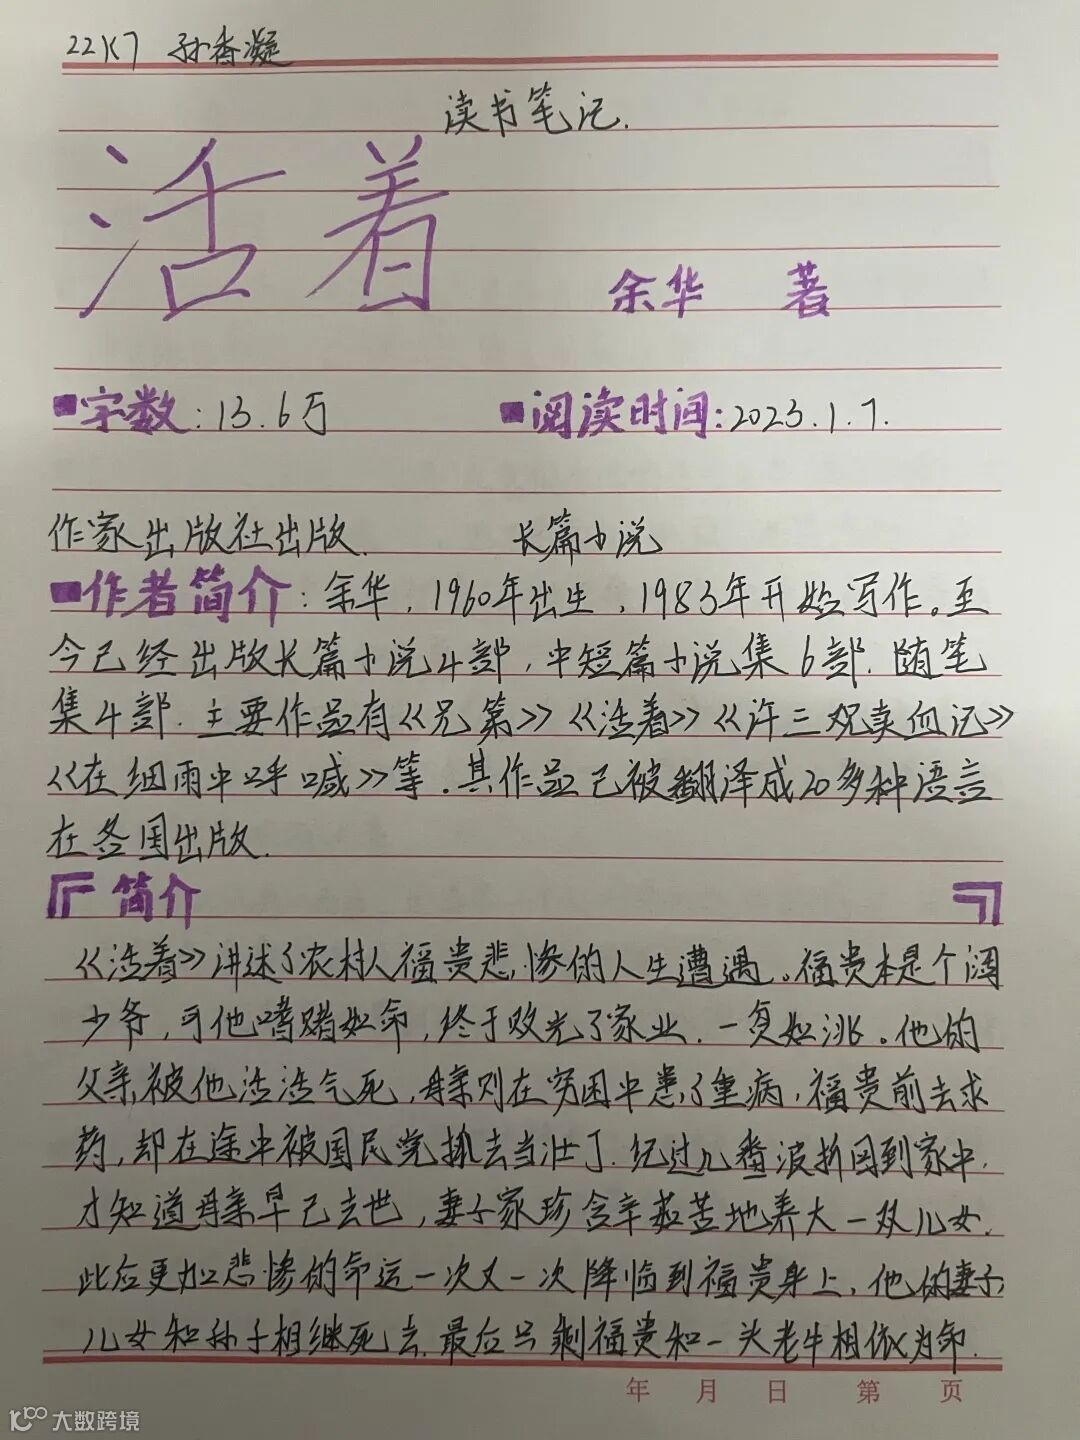 22K7 孙香凝
读书笔记.
活着
余华 著
字数:13.6万 阅读时间:2023.1.7.
作家出版社出版. 长篇小说
作者简介:余华,1960年出生,1983年开始写作。至
今已经出版长篇小说4部,中短篇小说集6部.随笔
集4部.主要作品有《兄第》《活着》《许三观卖血记》
《在细雨中呼喊》等.其作品已被翻译成20多种语言
在各国出版.
简介
《活着》讲述了农村人福贵悲惨的人生遭遇。福贵本是个阔
少爷,可他嗜赌如命,终于败光了家业.一贫如洗。他的
父亲被他活活气死,母亲则在穷困中患了重病,福贵前去求
药,却在途中被国民党抓去当壮丁.经过几番波折回到家中,
才知道母亲早已去世,妻子家珍含辛茹苦地养大一双儿女.
此后更加悲惨的命运一次又一次降临到福贵身上,他的妻子,
儿女和孙子相继死去.最后只剩福贵和一头老牛相依为命.
年 月 日 第 页
大数跨境